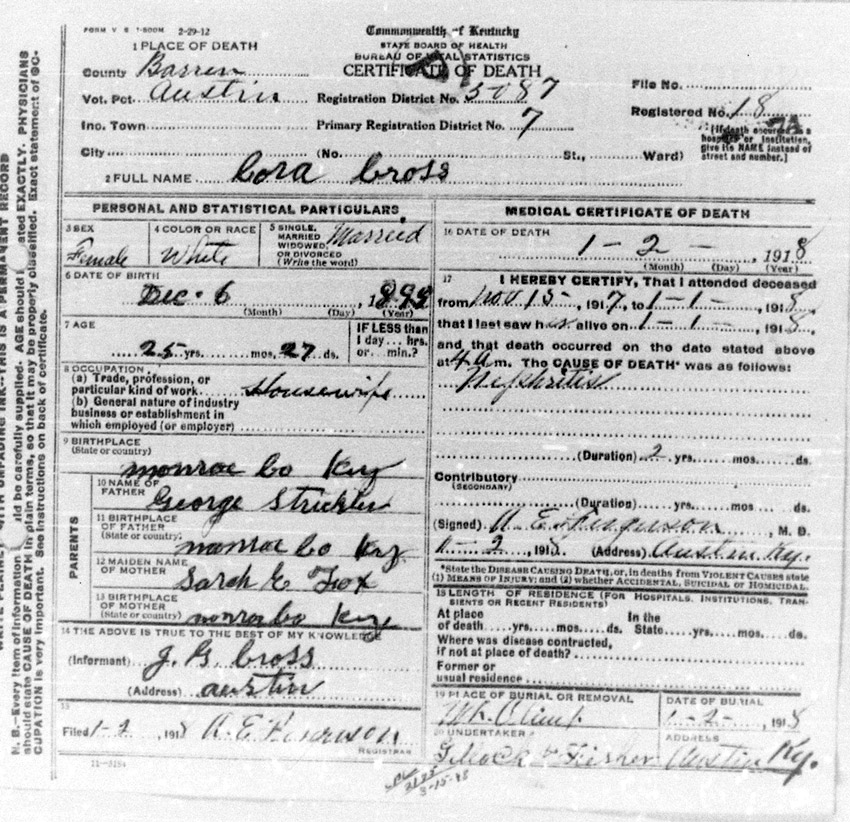 FORM V. S. 1-500M 2-29-12
Commonwealth of Kentucky
STATE BOARD OF HEALTH
BUREAU OF VITAL STATISTICS
CERTIFICATE OF DEATH
1 PLACE OF DEATH
County Barren
Vot. Pct. Austin
Registration District No. 5087
File No.
Inc. Town
Primary Registration District No. 7
Registered No. 18
[If death occurred in a hospital or institution, give its NAME instead of street and number.]
City (No. St., Ward)
2 FULL NAME Cora Cross
PERSONAL AND STATISTICAL PARTICULARS
3 SEX Female
4 COLOR OR RACE White
5 SINGLE, MARRIED WIDOWED, OR DIVORCED (Write the word) Married
6 DATE OF BIRTH
Dec. 6, 189
(Month) (Day) (Year)
7 AGE
25 yrs. mos. 27 ds.
IF LESS than 1 day... hrs. or... min.?
8 OCCUPATION
(a) Trade, profession, or particular kind of work Housewife
(b) General nature of industry business or establishment in which employed (or employer)
9 BIRTHPLACE
(State or country)
Monroe Co Ky
PARENTS
10 NAME OF FATHER George Strickler
11 BIRTHPLACE OF FATHER (State or country) Monroe Co Ky
12 MAIDEN NAME OF MOTHER Sarah E Fox
13 BIRTHPLACE OF MOTHER (State or country) Monroe Co Ky
14 THE ABOVE IS TRUE TO THE BEST OF MY KNOWLEDGE
(Informant) J. B Cross
(Address) Austin
15
Filed 1-2, 1918 A. E. Ferguson
REGISTRAR
11-3184
MEDICAL CERTIFICATE OF DEATH
16 DATE OF DEATH
1-2-, 1918
(Month) (Day) (Year)
17 I HEREBY CERTIFY, That I attended deceased
from Nov 15-, 1917, to 1-1-, 1918,
that I last saw her alive on 1-1-, 1918,
and that death occurred on the date stated above
at 4 a m. The CAUSE OF DEATH* was as follows:
Nephritis
(Duration) 2 yrs. mos. ds.
Contributory
(SECONDARY)
(Duration) yrs. mos. ds.
(Signed) A. E. Ferguson, M. D.
1-2, 1918 (Address) Austin Ky.
*State the DISEASE CAUSING DEATH, or, in deaths from VIOLENT CAUSES state
(1) MEANS OF INJURY; and (2) whether ACCIDENTAL, SUICIDAL or HOMICIDAL.
18 LENGTH OF RESIDENCE (FOR HOSPITALS, INSTITUTIONS, TRANSIENTS OR RECENT RESIDENTS)
At place of death yrs. mos. ds. In the State yrs. mos. ds.
Where was disease contracted,
if not at place of death?
Former or
usual residence
19 PLACE OF BURIAL OR REMOVAL
DATE OF BURIAL
1-2-, 1918
20 UNDERTAKER
ADDRESS
Gillock & Fisher Austin Ky.
3-15-48
N. B.—Every item of information should be carefully supplied. AGE should be stated EXACTLY. PHYSICIANS
should state CAUSE OF DEATH in plain terms, so that it may be properly classified. Exact statement of OC-
CUPATION is very important. See instructions on back of certificate.
WRITE PLAINLY WITH UNFADING INK--THIS IS A PERMANENT RECORD